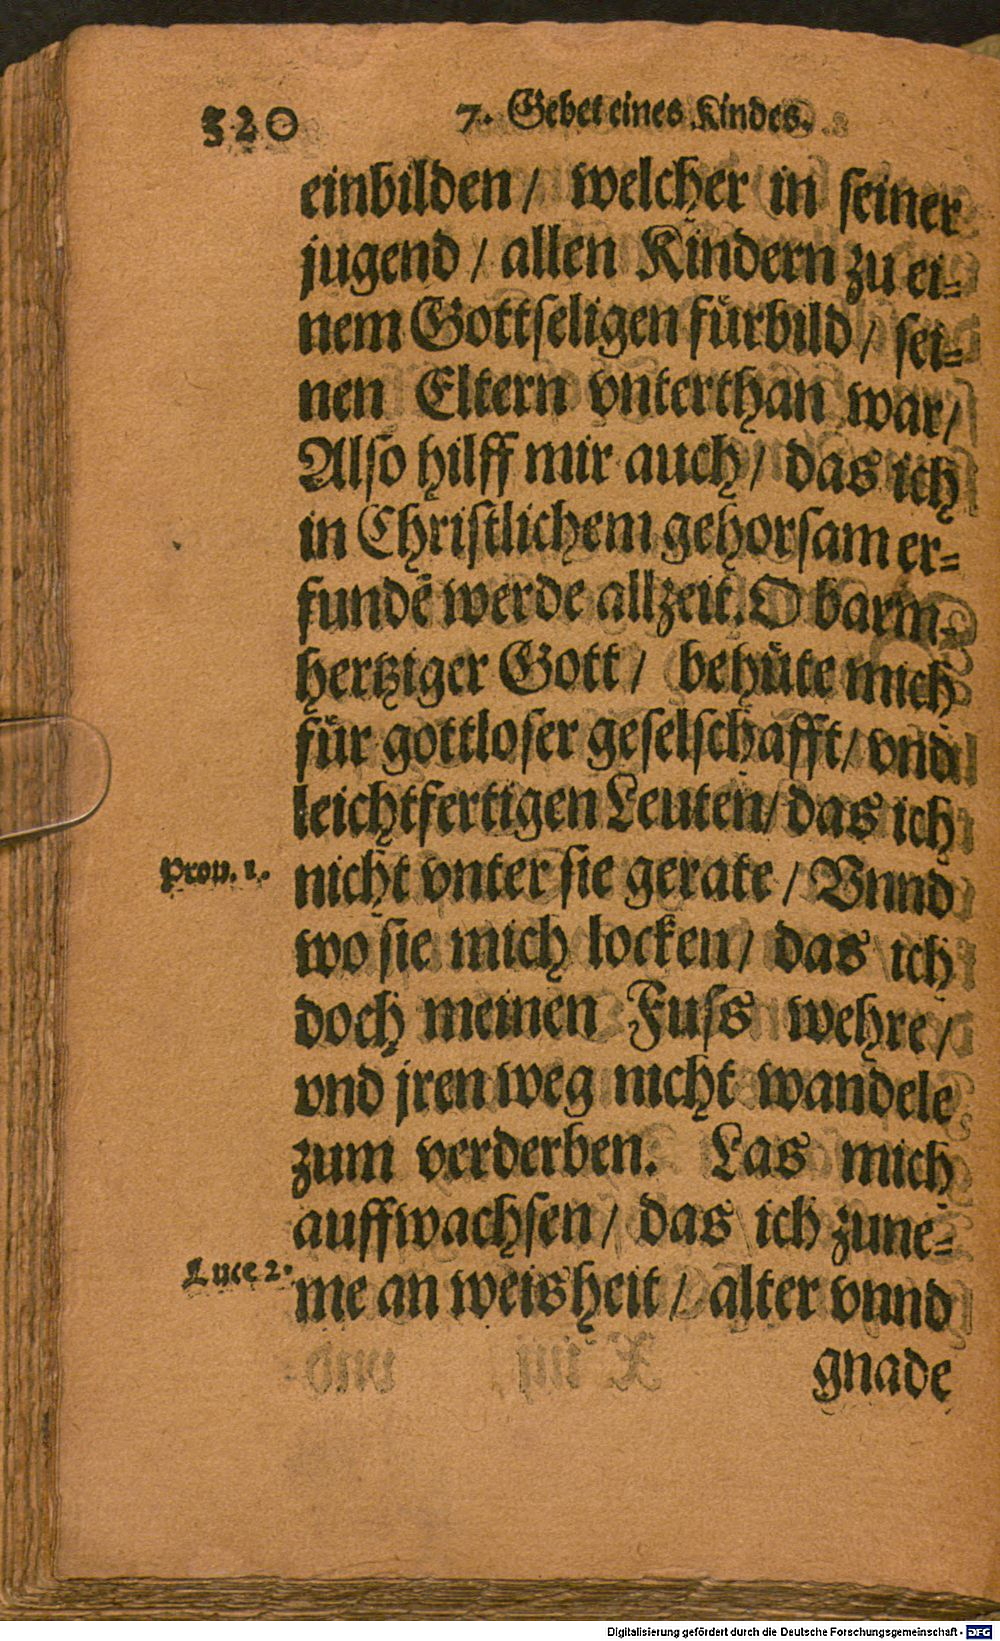 320 7. Gebet eines Kindes.
einbilden / welcher in seiner
jugend / allen Kindern zu ei⸗
nem Gottseligen fürbild / sei⸗
nen Eltern vnterthan war /
Also hilff mir auch / das ich
in Christlichem gehorsam er⸗
fundē werde allzeit. O barm⸗
hertziger Gott / behüte mich
für gottloser geselschafft / vnd
leichtfertigen Leuten / das ich
Prov. 1. nicht vnter sie gerate / Vnnd
wo sie mich locken / das ich
doch meinen Fuss wehre /
vnd jren weg nicht wandele
zum verderben. Las mich
auffwachsen / das ich zune⸗
Luce 2. me an weisheit / alter vnnd
gnade
Digitalisierung gefördert durch die Deutsche Forschungsgemeinschaft - DFG